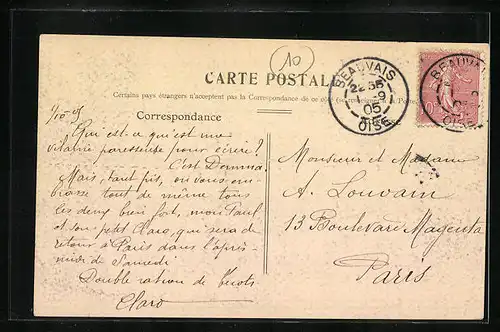 10
CARTE POSTALE
BEAUVAIS
22 35
9
05
OISE
BEAUVAI
Certains pays étrangers n'acceptent pas la Correspondance de ce côté
Correspondance
Qui est-ce qui est une
paresseuse pour écrire?
C'est
Mais, tant pis, on vous em-
brasse tout de même tous
les deux bien fort, mon Paul
et son petit Claro, qui sera de
retour à Paris dans l'après-
midi de Samedi
Double ration de bécots
Claro
Monsieur et Madame
A. Louvain
13 Boulevard Magenta
Paris